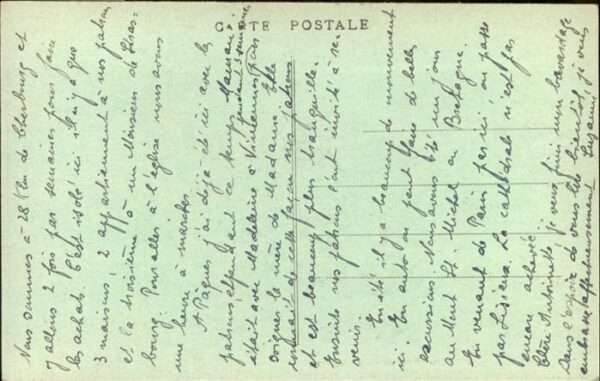 CARTE POSTALE
Nous sommes à 28 Km de Cherbourg et
y allons 2 fois par semaines pour faire
les achats. C'est isolé ici. Il n'y a que
3 maisons, 2 appartiennent à nos patrons
et la troisième à un Monsieur de
bourg. Pour aller à l'église nous avons
une heure à marcher.
A Pâques j'ai déjà été ici avec les
patrons, et pendant ce temps Maman
était avec Madeleine à Vincennes pour
pendant 1 semaine
soigner la mère de Madame. Elle
connait de cette façon nos patrons
et est beaucoup plus tranquille.
Ensuite nos patrons l'ont invité à
venir.
En été il y a beaucoup de mouvement
ici. En auto on peut faire de belles
excursions. Nous avons été un jour
au Mont St. Michel en Bretagne.
En venant de Paris par ici, on passe
par Lisieux. La cathédrale n'est pas
encore achevée
Chère Antoinette je vais finir mon bavardage
Dans l'espoir de vous lire bientôt, je vous
embrasse affectueusement Suzanne